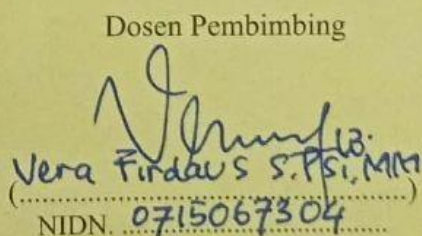 Dosen Pembimbing
Vera Firdaus S.Psi, MM
(........................................)
NIDN. 0715067304